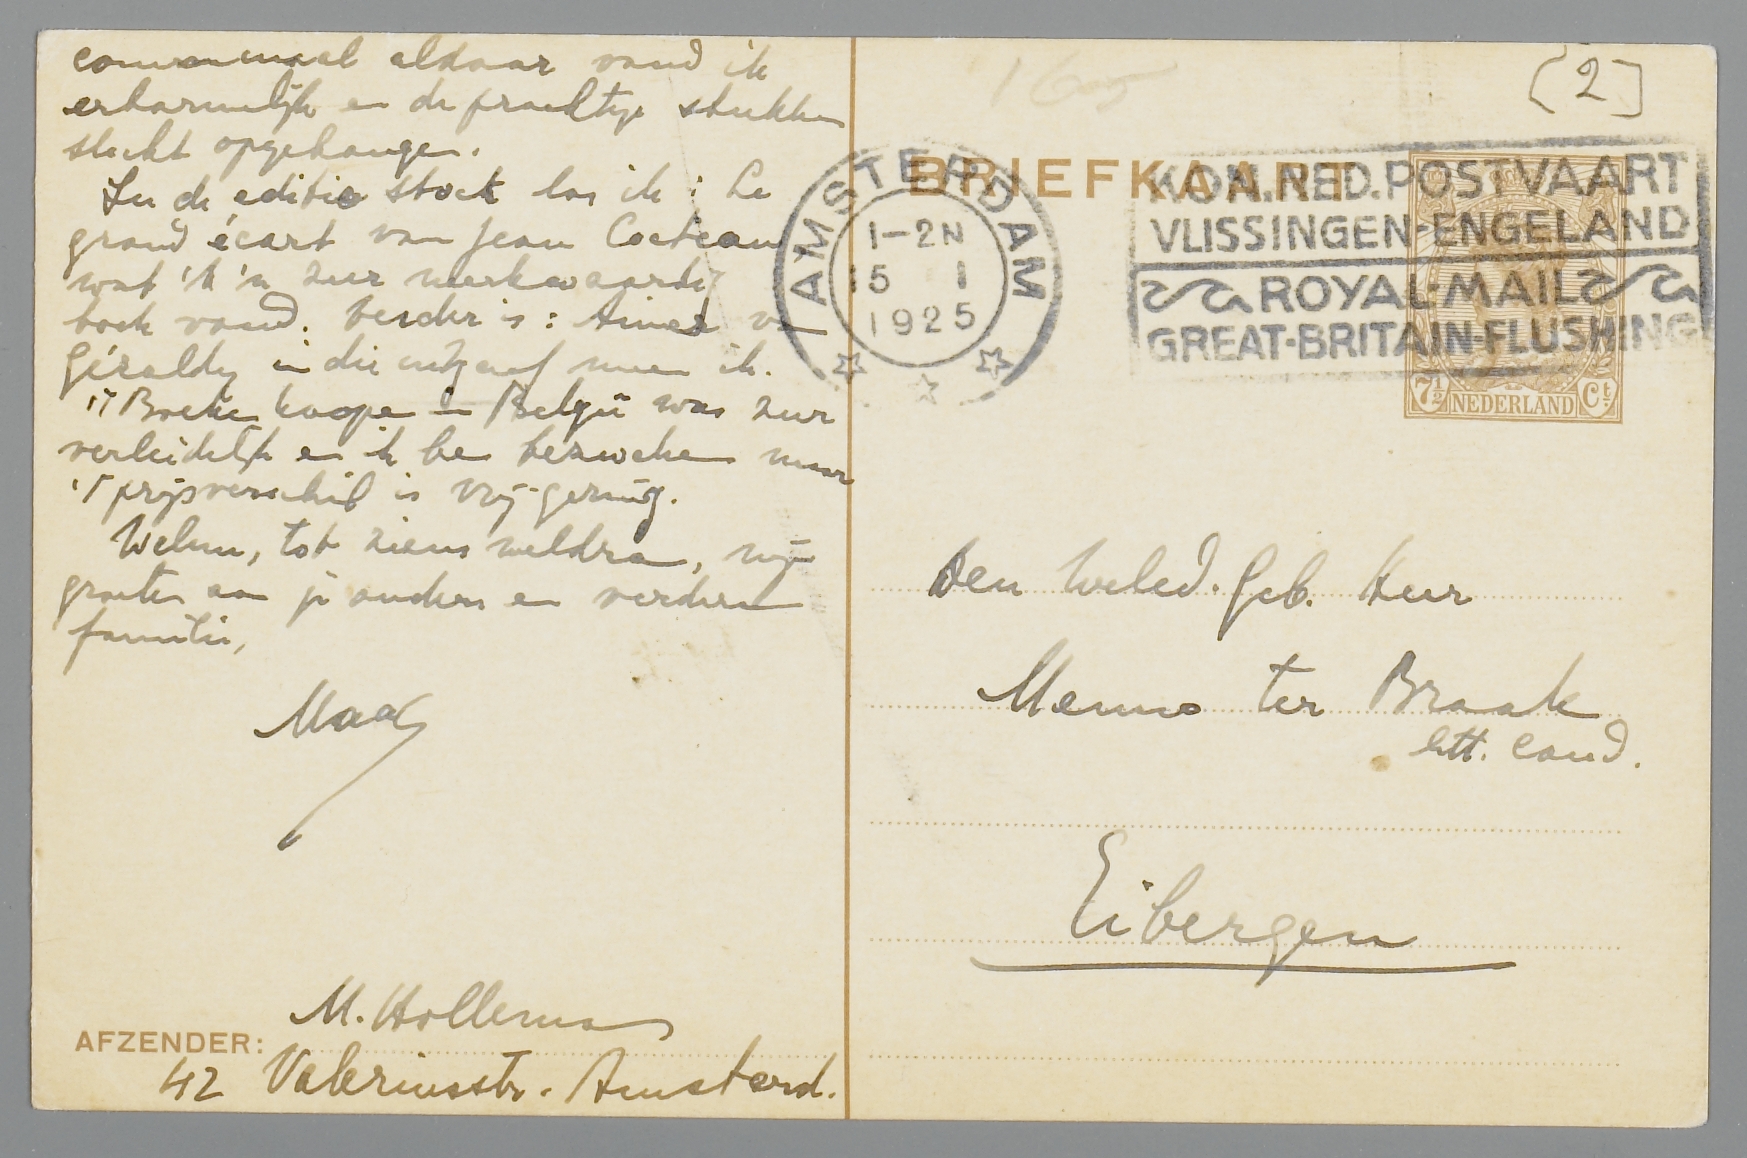 communaal aldaar vond ik
erbarmelijk en de prachtige stukken
slecht opgehangen.
In de editie Stock las ik: Le
grand écart van Jean Cocteau
wat 'k 'n zeer merkwaardig
boek vond. Verder is: Aimer v
Géraldy in die uitgaaf meen ik.
't Boeken koopen in België was zeer
verleidelijk en ik ben bezweken maar
't prijsverschil is vrij gering.
Welnu, tot ziens weldra, mijn
groeten aan je ouders en verdere
familie,
Maa
M. Holleman
AFZENDER:
42 Valeriusstr. Amsterd.
1605
[2]
BRIEFKAART
AMSTERDAM
1-2N
15 1
1925
KON.NED.POSTVAART
VLISSINGEN-ENGELAND
ROYAL-MAIL
GREAT-BRITAIN-FLUSHING
7½ NEDERLAND Ct.
Den Weled. Geb. Heer
Menno ter Braak
litt. cand.
Eibergen